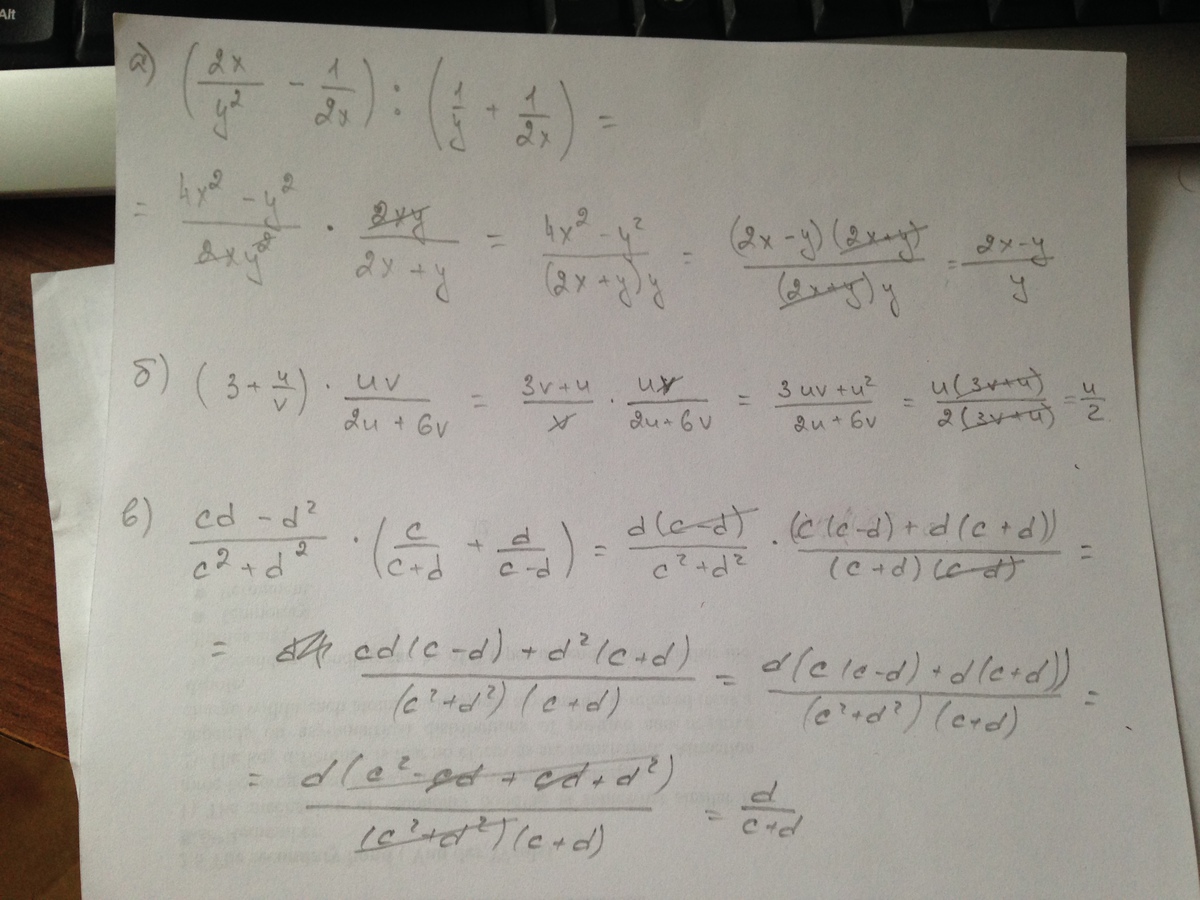 Alt
а) (2x/y² - 1/2x) : (1/y + 1/2x) =
= 4x² - y²/2xy² · 2xy/2x + y = 4x² - y²/(2x + y)y = (2x - y)(2x + y)/(2x + y)y = 2x - y/y
б) (3 + u/v) · uv/2u + 6v = 3v + u/v · uv/2u + 6v = 3uv + u²/2u + 6v = u(3v + u)/2(3v + u) = u/2
в) cd - d²/c² + d² · (c/c + d + d/c - d) = d(c - d)/c² + d² · (c(c - d) + d(c + d))/(c + d)(c - d) =
= cd(c - d) + d²(c + d)/(c² + d²)(c + d) = d(c(c - d) + d(c + d))/(c² + d²)(c + d) =
= d(c² - cd + cd + d²)/(c² + d²)(c + d) = d/c + d